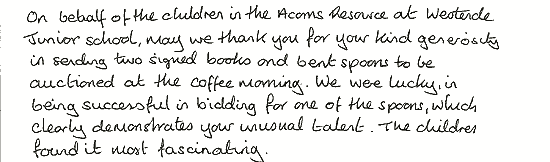 On behalf of the children in the Acorns Resource at Westerde
Junior school, may we thank you for your kind generosity
in sending two signed books and bent spoons to be
auctioned at the coffee morning. We were lucky, in
being successful in bidding for one of the spoons, which
clearly demonstrates your unusual talent. The children
found it most fascinating.